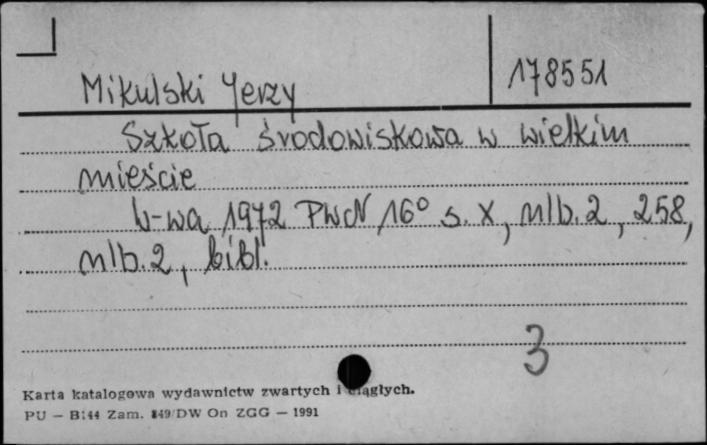 178551
Mikulski Jerzy
Szkoła środowiskowa w wielkim
mieście
W-wa 1972 PWN 16° s. X, nlb. 2, 258,
nlb. 2, bibl.
3
Karta katalogowa wydawnictw zwartych i ciągłych.
PU — B:44 Zam. 849/DW On ZGG — 1991